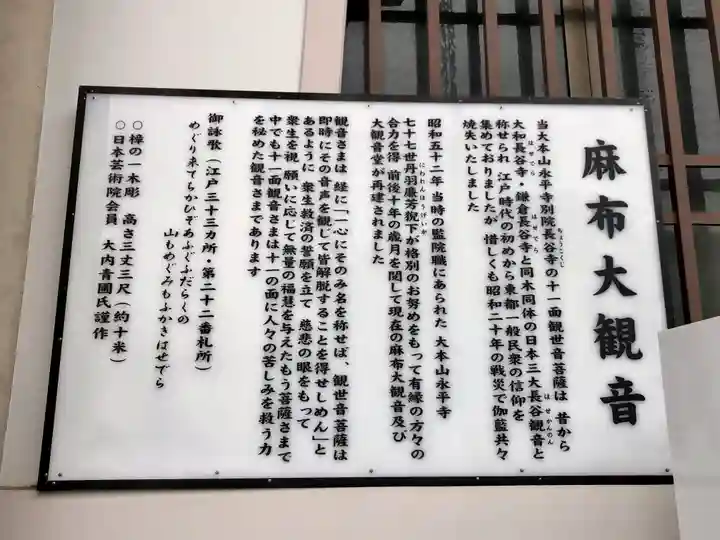 麻布大観音
当大本山永平寺別院長谷寺の十一面観世音菩薩は 昔から
大和長谷寺・鎌倉長谷寺と同木同体の日本三大長谷観音と
称せられ 江戸時代の初めから東都一般民衆の信仰を
集めておりましたが 惜しくも昭和二十年の戦災で伽藍共々
焼失いたしました
昭和五十二年 当時の監院職にあられた 大本山永平寺
七十七世丹羽廉芳猊下が格別のお努めをもって有縁の方々の
合力を得 前後十年の歳月を関して現在の麻布大観音及び
大観音堂が再建されました
観音さまは 経に「一心にそのみ名を称せば、観世音菩薩は
即時にその音声を観じて皆解脱することを得せしめん」と
あるように 衆生救済の誓願を立て 慈悲の眼をもって
衆生を視 願いに応じて無量の福慧を与えたもう菩薩さまで
中でも十一面観音さまは十一の面に人々の苦しみを救う力
を秘めた観音さまであります
御詠歌(江戸三十三カ所・第二十二番札所)
めぐり来てちかひぞあふぐふだらくの
山もめぐみもふかきはせでら
○樟の一木彫 高さ三丈三尺(約十米)
○日本芸術院会員 大内青圃氏謹作